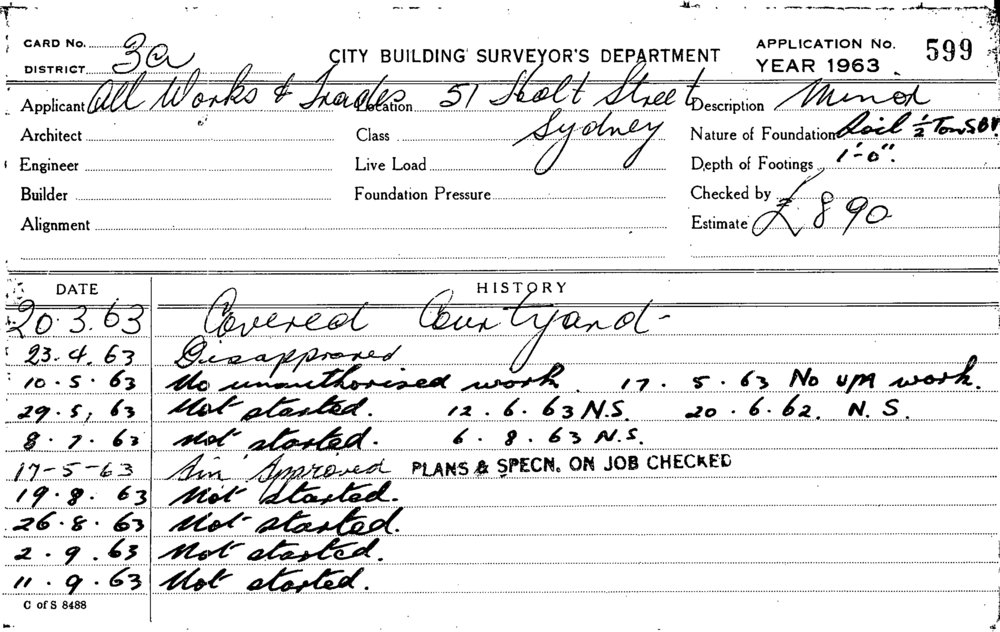 CARD No. 3a
DISTRICT
CITY BUILDING SURVEYOR'S DEPARTMENT
APPLICATION No. 599
YEAR 1963
Applicant All Works & Trades Location 51 Holt Street Description Minor
Architect Class Sydney Nature of Foundation Soil ½ Ton S.B.V.
Engineer Live Load Depth of Footings 1'-0".
Builder Foundation Pressure Checked by
Alignment Estimate £890
DATE HISTORY
20.3.63 Covered Courtyard-
23.4.63 Disapproved
10.5.63 No unauthorised work. 17.5.63 No work.
29.5,63 Not started. 12.6.63 N.S. 20.6.62. N.S.
8.7.63 Not started. 6.8.63 N.S.
17-5-63 Approved PLANS & SPECN. ON JOB CHECKED
19.8.63 Not started.
26.8.63 Not started.
2.9.63 Not started.
11.9.63 Not started.
C of S 8488